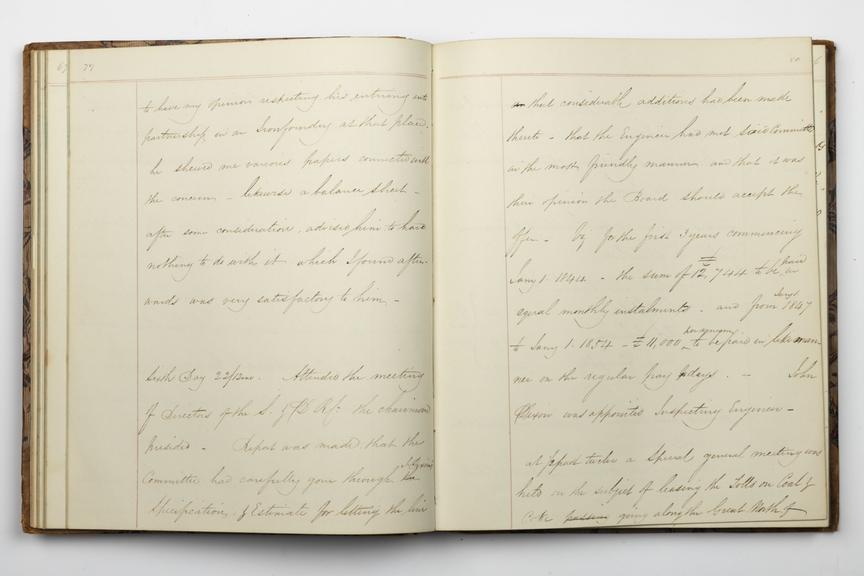 67 77
to have my opinion respecting his entering into
partnership in an Ironfoundry at that place.
he shewed me various papers connected with
the concern - likewise a balance sheet -
after some consideration, advised him to have
nothing to do with it which I found after-
wards was very satisfactory to him -
Sixth Day 22/12mo. Attended the meeting
of Directors of the S. & D R Co the chairman
presided - Report was made that the
Committee had carefully gone through the
Specification & Estimate for letting the line
that considerable additions had been made
thereto - that the Engineer had met said Committee
in the most friendly manner and that it was
their opinion the Board should accept the
offer - viz for the first 3 years commencing
Jany 1 1844 - the sum of £12,744 to be paid in
equal monthly instalments. and from Jany 1 1847
to Jany 1. 1854 - £11,000 per annum to be paid in like man-
ner on the regular pay days. - John
Dixon was appointed Inspecting Engineer -
at ½ past twelve a Special general meeting was
held on the subject of leasing the Tolls on Coal &
Coke passing going along the Great North of